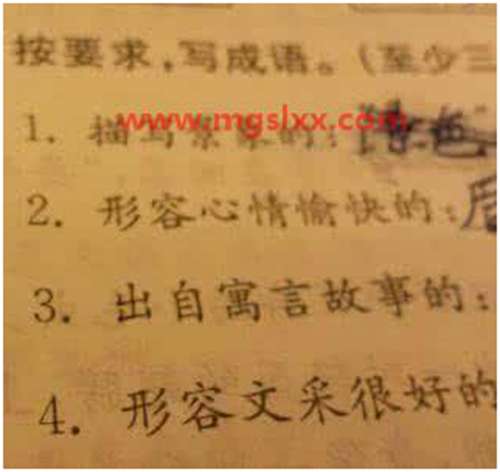 按要求，写成语。(至少三
www.mgslxx.com
1. 描写景象的：
2. 形容心情愉快的：
3. 出自寓言故事的：
4. 形容文采很好的